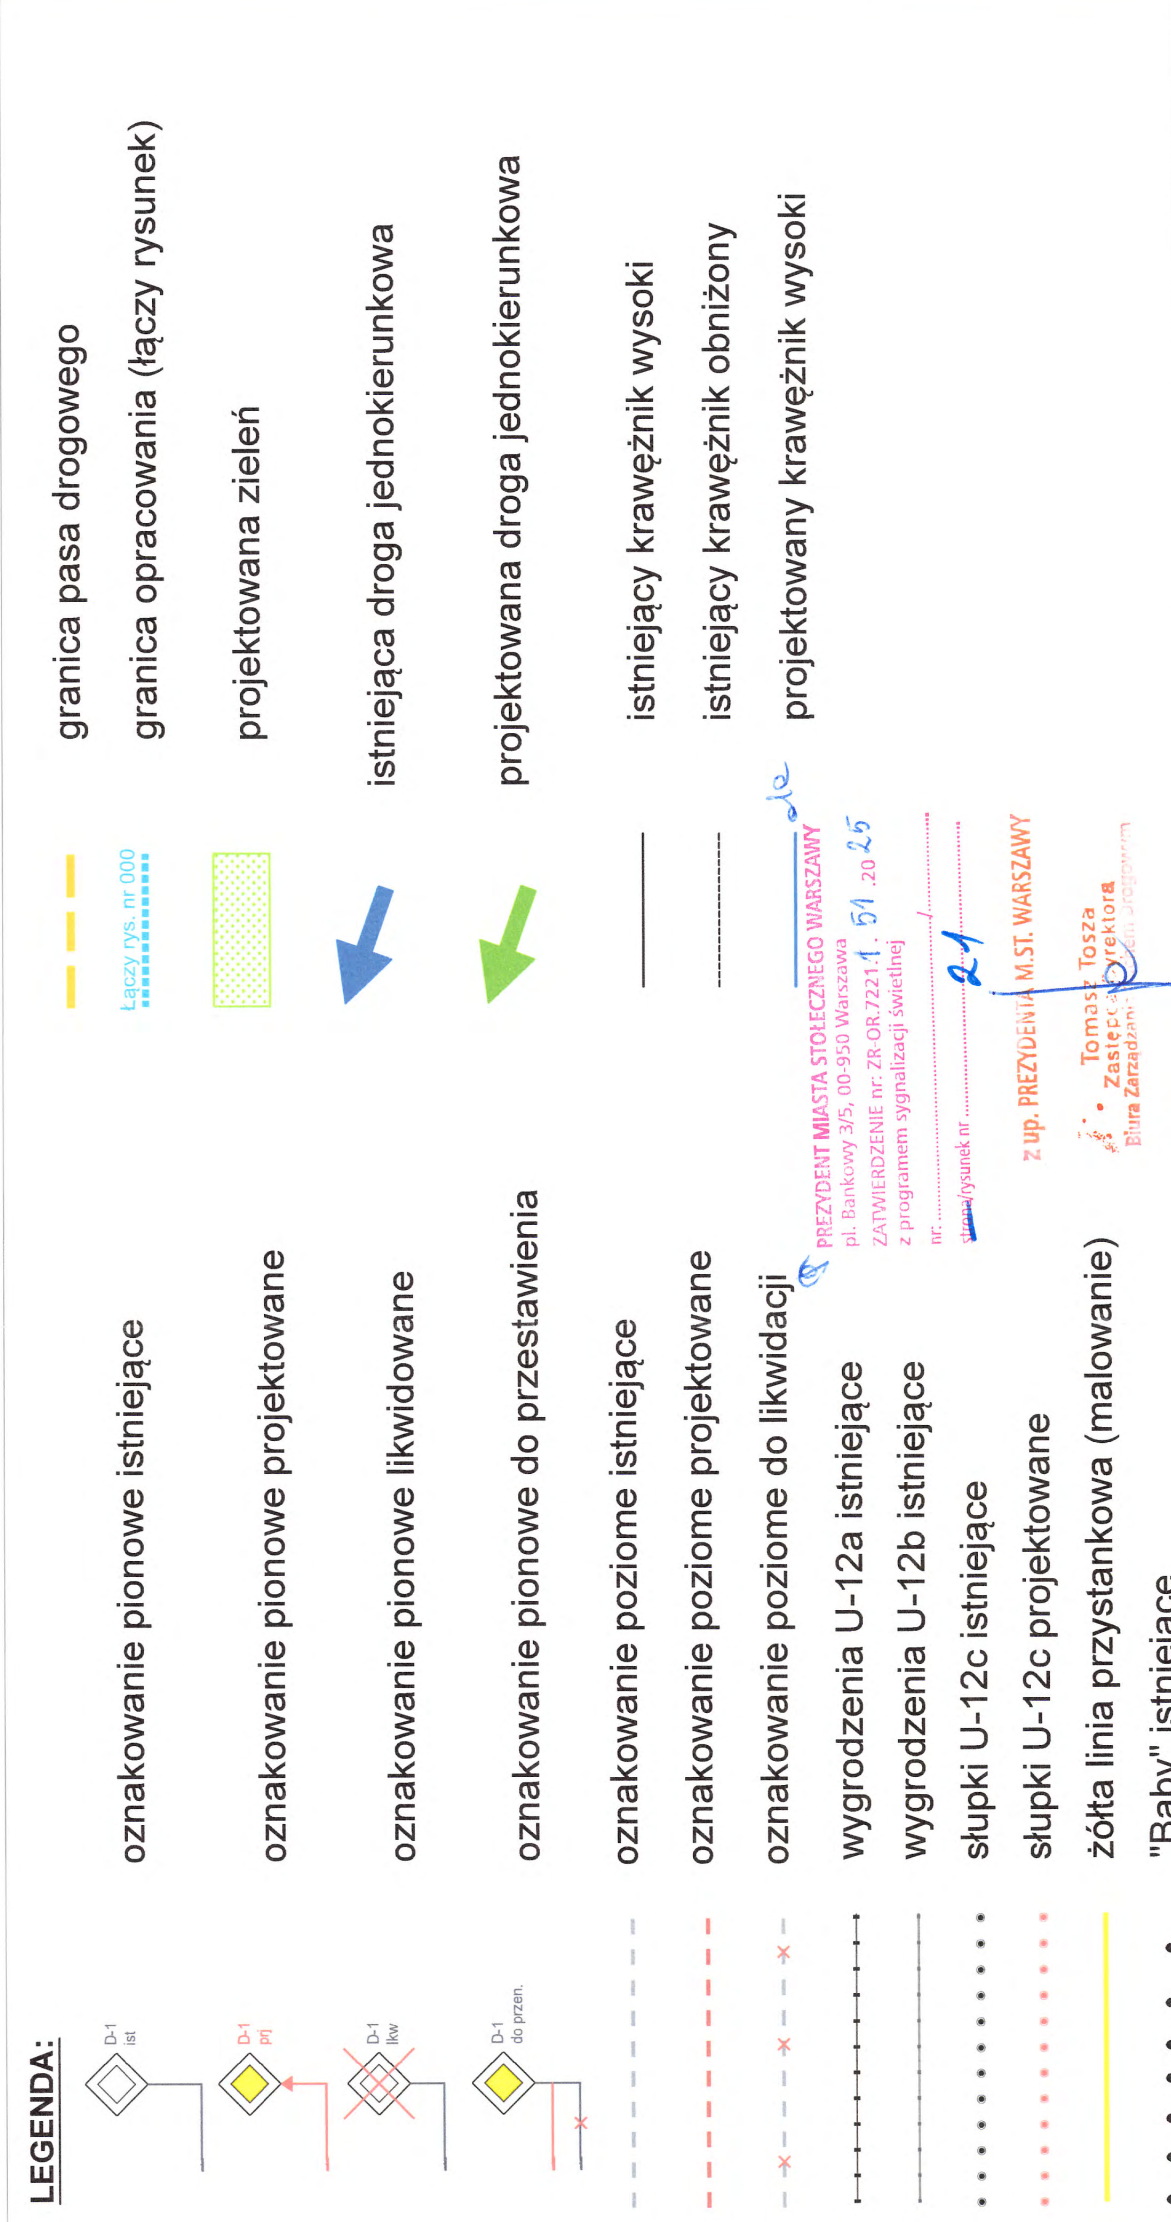 LEGENDA:
D-1
ist
oznakowanie pionowe istniejące
D-1
prj
oznakowanie pionowe projektowane
D-1
lkw
oznakowanie pionowe likwidowane
D-1
do przen.
oznakowanie pionowe do przestawienia
oznakowanie poziome istniejące
oznakowanie poziome projektowane
oznakowanie poziome do likwidacji
wygrodzenia U-12a istniejące
wygrodzenia U-12b istniejące
słupki U-12c istniejące
słupki U-12c projektowane
żółta linia przystankowa (malowanie)
"Baby" istniejące
granica pasa drogowego
Łączy rys. nr 000
granica opracowania (łączy rysunek)
projektowana zieleń
istniejąca droga jednokierunkowa
projektowana droga jednokierunkowa
istniejący krawężnik wysoki
istniejący krawężnik obniżony
projektowany krawężnik wysoki
PREZYDENT MIASTA STOŁECZNEGO WARSZAWY
pl. Bankowy 3/5, 00-950 Warszawa
ZATWIERDZENIE nr: ZR-OR.7221.1.51.2025
z programem sygnalizacji świetlnej
nr: ........ / ........
strona/rysunek nr ........ 21 ........
z up. PREZYDENTA M.ST. WARSZAWY
Tomasz Tosza
Zastępca Dyrektora
Biura Zarządzania Drogowym